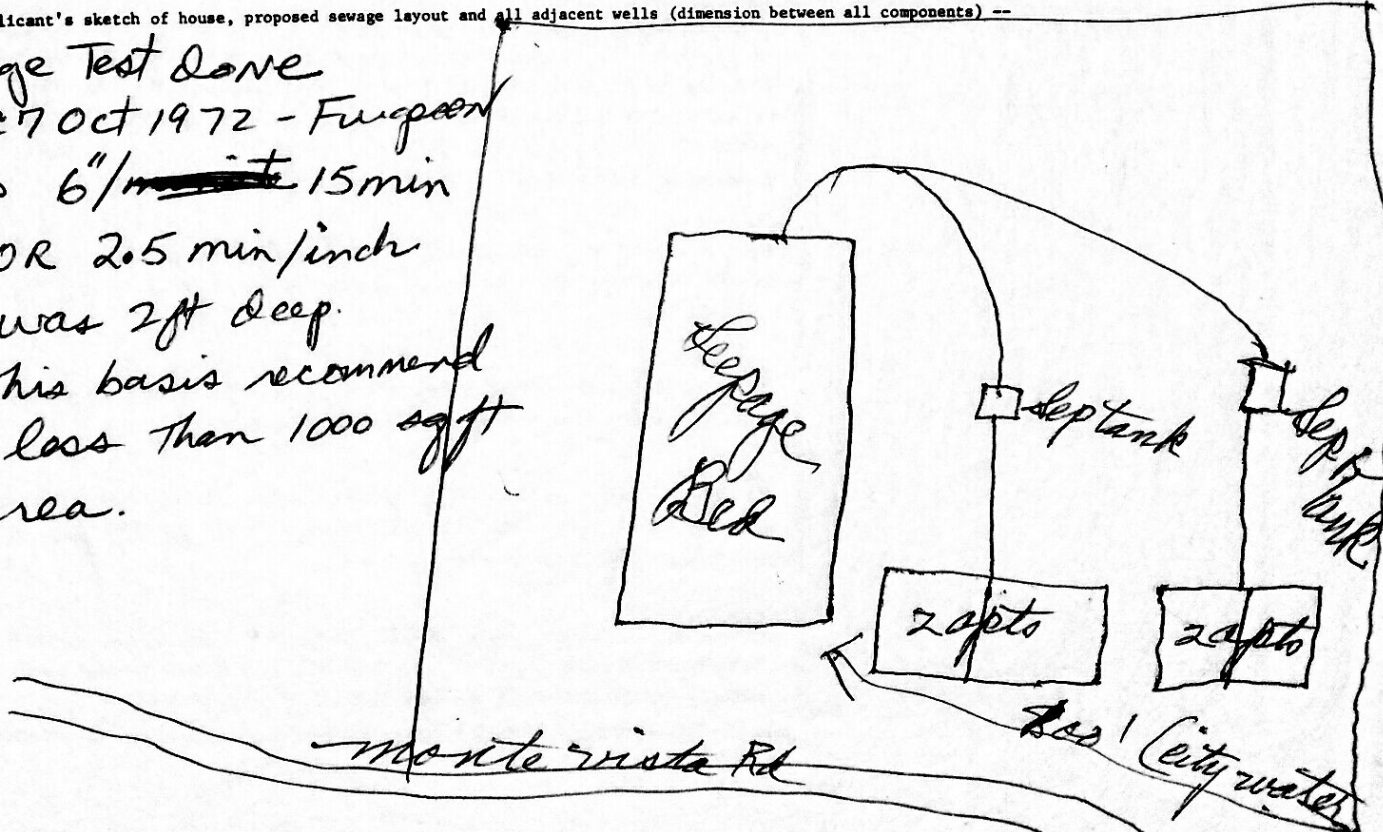 licant's sketch of house, proposed sewage layout and all adjacent wells (dimension between all components) --
ge Test Done
7 Oct 1972 -
6"/ 15 min
OR 2.5 min/inch
was 2ft deep.
his basis recommend
less Than 1000 sq ft
rea.
Seepage
Bed
Sep tank
Sep
Tank
2 apts
2 apts
City water
Monte vista Rd